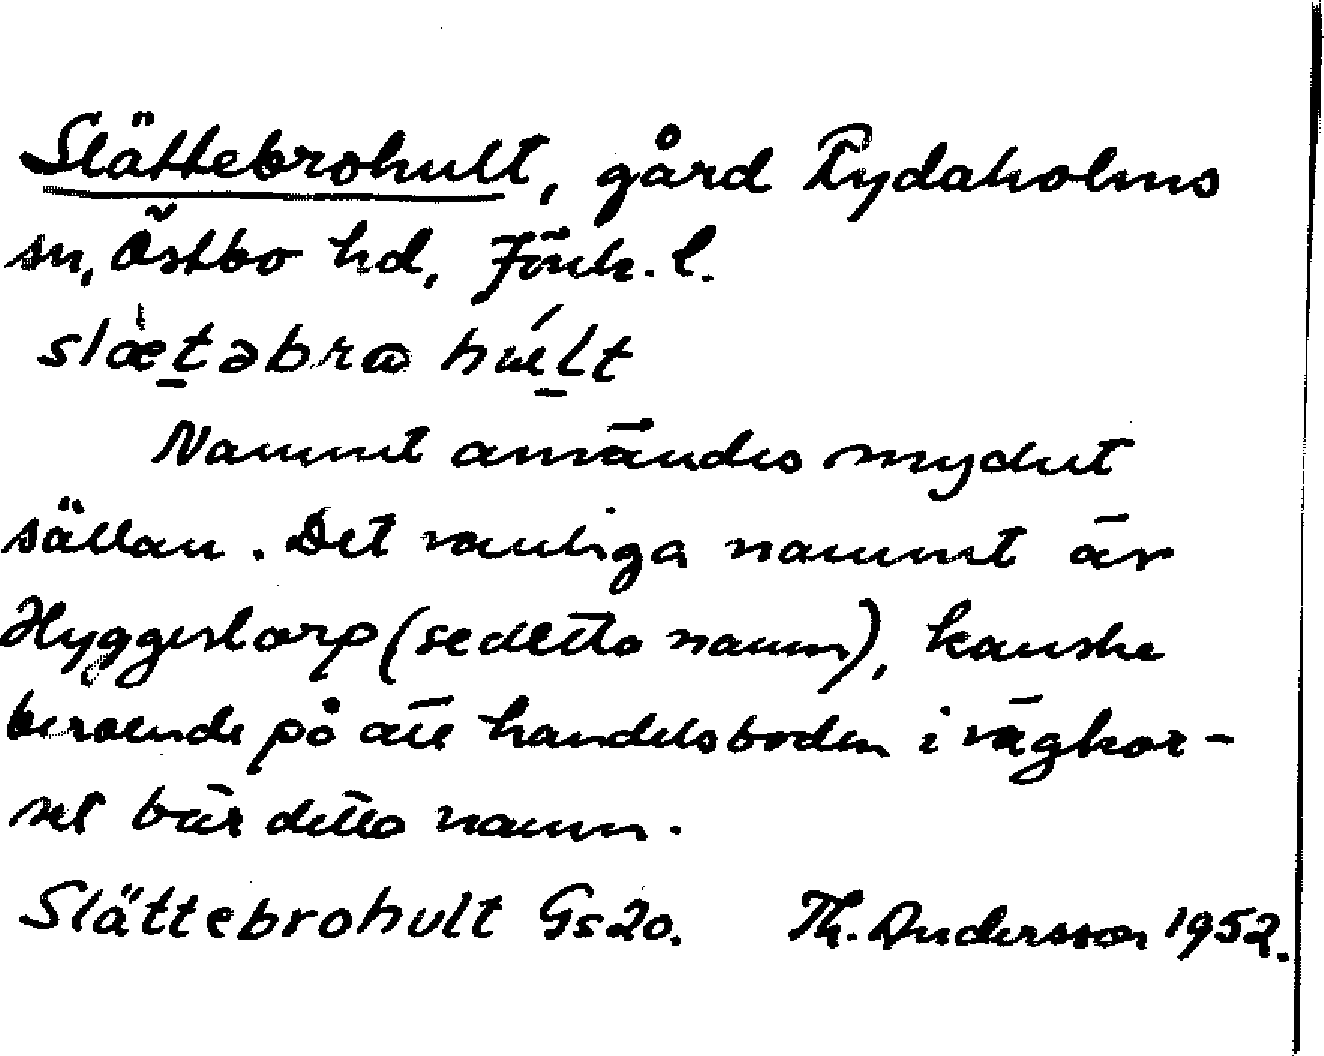 Slättebrohult, gård Rydaholms
sn, Östbo hd, Jönk. l.
slæ̀təbrɷ húlt
Namnet användes mycket
sällan. Det vanliga namnet är
Hyggestorp (se detta namn), kanske
beroende på att handelsboden i vägkor-
set bär detta namn.
Slättebrohult Gs20. Th. Andersson 1952.